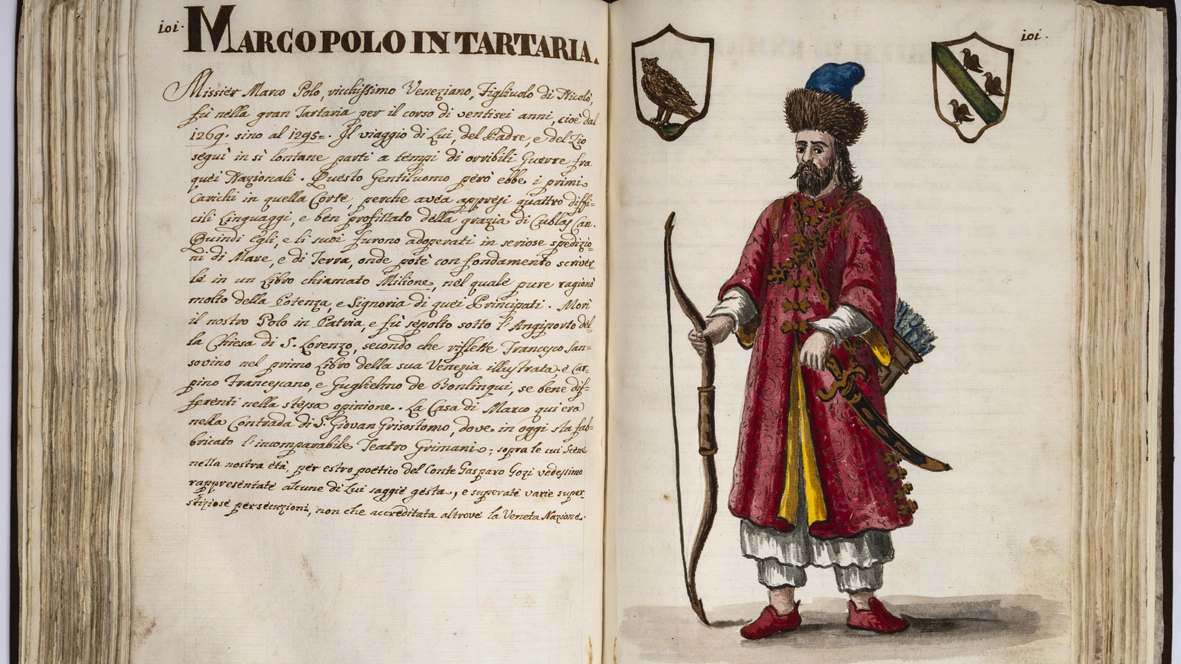 101·
MARCO POLO IN TARTARIA.
Missier Marco Polo, ricchissimo Veneziano, Figliuolo di Nicolò,
fù nella gran Tartaria per il corso di ventisei anni, cioè dal
1269. sino al 1295. Il viaggio di Lui, del Padre, e del Zio
seguì in sì lontane parti a tempi di orribili Guerre fra
quei Nazionali. Questo Gentiluomo però ebbe i primi
Carichi in quella Corte, perche avéa appresi quattro diffi-
cili Linguaggi, e ben profittato della grazia di Cublaj Can.
Quindi Egli, e li suoi furono adoperati in seriose spedizio-
ni di Mare, e di Terra, onde potè con fondamento scriver-
lè in un Libro chiamato Milione, nel quale pure ragionò
molto della Potenza, e Signoria di quei Principati. Morì
il nostro Polo in Patria, e fù sepolto sotto l'Angiporto del-
la Chiesa di S. Lorenzo, secondo che riflette Francesco San-
sovino nel primo Libro della sua Venezia illustrata, e Car-
pino Francescano, e Guglielmo de Bonlingui, se bene dif-
ferenti nella stessa opinione. La Casa di Marco qui era
nella Contrada di S. Giovan Grisostomo, dove in oggi sta fab-
bricato l'incomparabile Teatro Grimani; sopra le cui Scene
nella nostra età, per estro poetico del Conte Gasparo Gozi vedessimo
rappresentate alcune di Lui saggie gesta, e superate varie super-
stiziose persecuzioni, non che accreditata altrove la Veneta Nazione.
101·